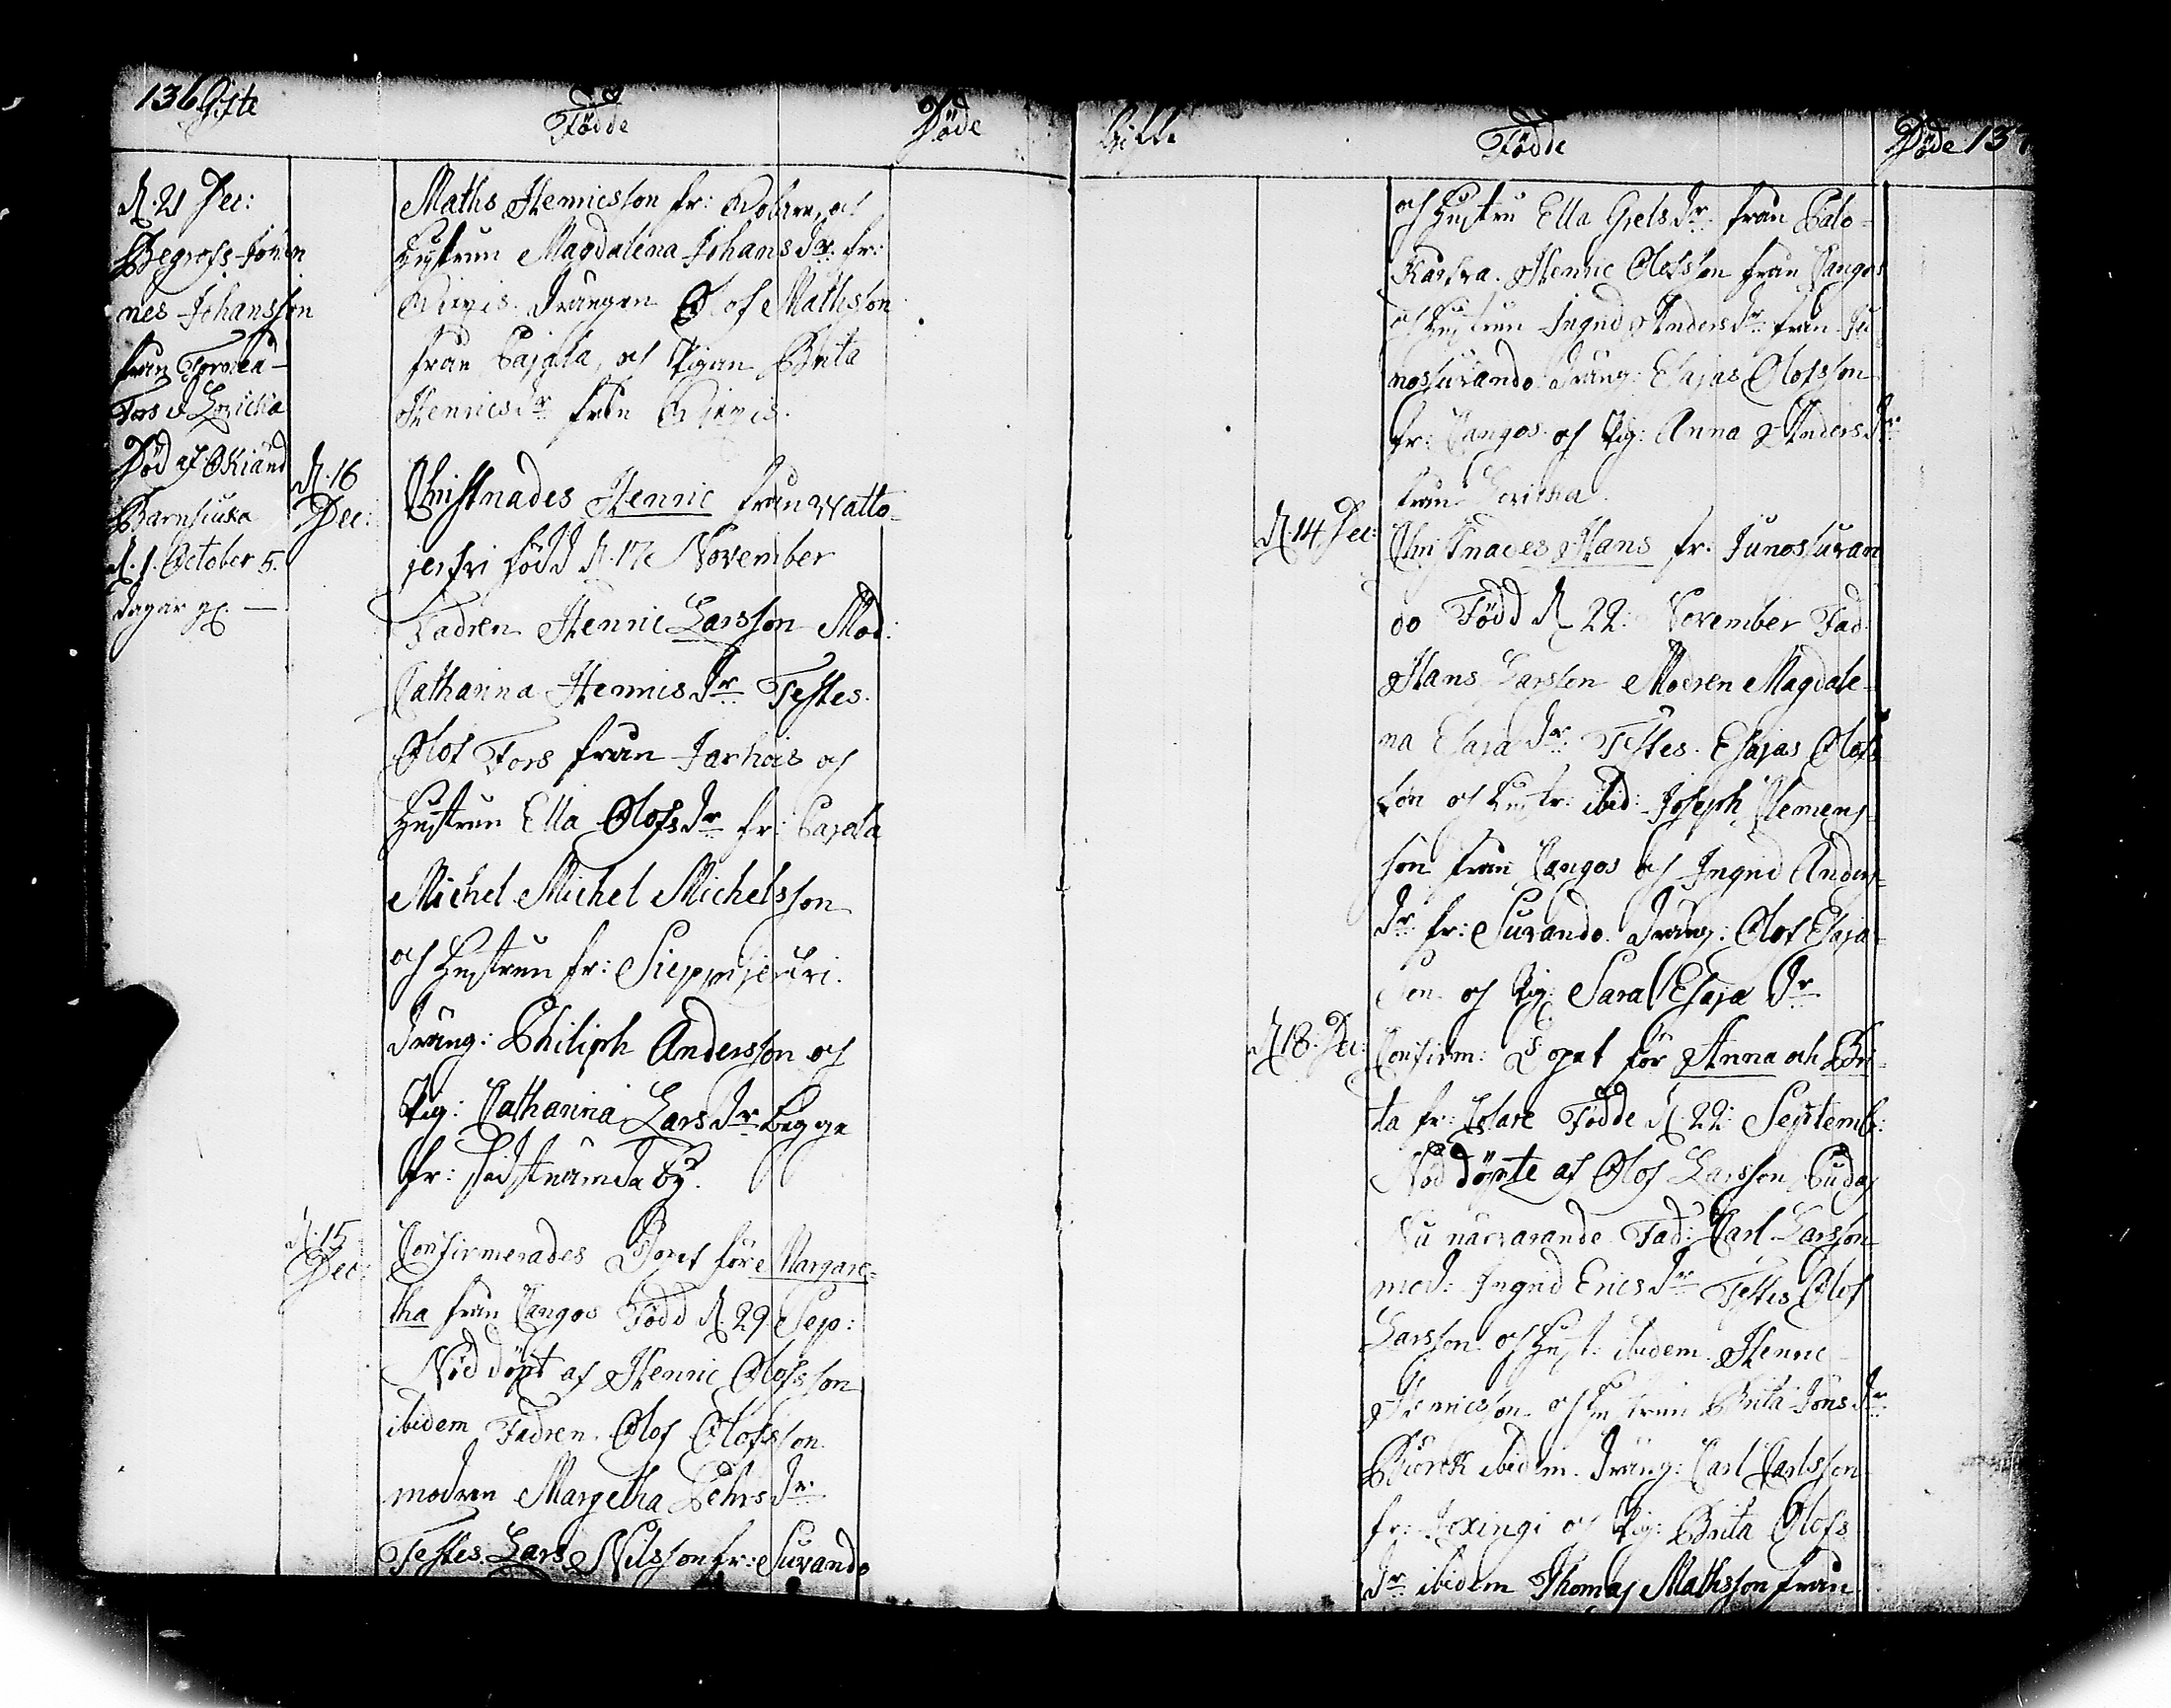 136 Gifte
Födde
Döde
d. 21 Dec:
Begrofs Johan
nes Johansson
från Tornea-
Fors v Lovicka
Död af Okiänd
Barnsiuka
d. 1. October 5.
dagar gl. —
Maths Henricsson fr: Kolare, och
Hustrun Magdalena Johans Dr: fr:
Kiexis. Drängen Olof Mathsson
från Pajala, och Pigan Brita
Henrics Dr från Kiexis.
d. 16
Dec:
Christnades Henric från Watto-
jerfvi född d. 17 November
Fadren Henric Larsson Mod:
Catharina Henrics Dr Testes.
Olof Fors från Jarhois och
Hustrun Ella Olofs Dr fr: Pajala
Michel Michel Michelsson
och Hustrun fr: Sieppijerfvi.
Dräng: Philiph Andersson och
Pig: Catharina Lars Dr begge
fr: sidstnämda by.
d. 15
Dec:
Confirmerades Dopet för Margare-
tha från Kangos Född d. 29 Sep:
Nöd döpt af Henric Olofsson
ibidem Fadren Olof Olofsson
modren Margetha Pehrs Dr
Testes. Lars Nilsson fr: Suvando
Gifte
Födde
Döde 137
och Hustru Ella Grels Dr från Palo-
Karkra. Henric Olofsson från Kangos
och Hustrun Ingrid Anders Dr från Ju
nossuvando Dräng: Esajas Olofsson
fr: Kangos och Pig: Anna Anders Dr
från Lovicka.
d. 14 Dec:
Christnades Hans fr: Junossuvan
do Född d 22: November Fad:
Hans Larsson Modren Magdale-
na Esaja Dr: Testes. Esajas Olofs
son och Hustr: ibid: Joseph Clemens-
son från Kangos och Ingrid Anders-
Dr fr: Suvando. Dräng: Olof Esaja-
son och Pig: Sara Esaja Dr
d 18: Dec:
Confirm: Dopet för Anna och Bri-
ta fr: Kolare Födde d. 22: Septemb:
Nöd döpte af Olof Larsson Budas
Nu närvarande Fad: Carl Larsson
mod: Ingrid Erics Dr Testes Olof
Larsson och Hust: ibidem Henric
Henricsson och Hustrun Brita Jöns Dr
Biörck ibidem. Dräng: Carl Carlsson
fr: Jexingi och Pig: Brita Olofs
Dr ibidem Thomas Mathsson från